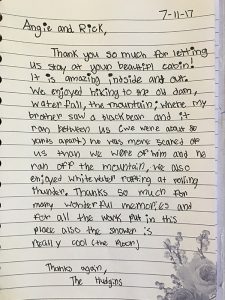 7-11-17
Angie and Rick,
Thank you so much for letting
us stay at your beautiful cabin!
It is amazing inside and out.
We enjoyed hiking to the old dam,
waterfall, the mountain; where my
brother saw a black bear and it
ran between us (we were about 50
yards apart) he was more scared of
us than we were of him and he
ran off the mountain, We also
enjoyed whitewater rafting at rolling
thunder. Thanks so much for
many wonderful memories and
for all the work put in this
place also the shower is
really cool (the floor)
Thanks again,
The Hudgins